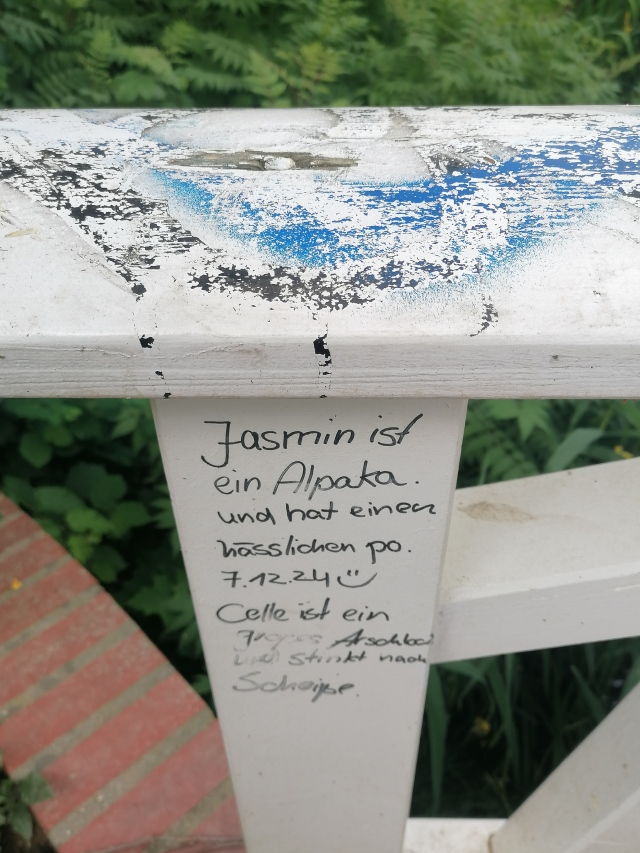 Jasmin ist
ein Alpaka.
und hat einen
hässlichen po.
7.12.24 ü
Celle ist ein
großes Arschloch
und stinkt nach
Scheiße.